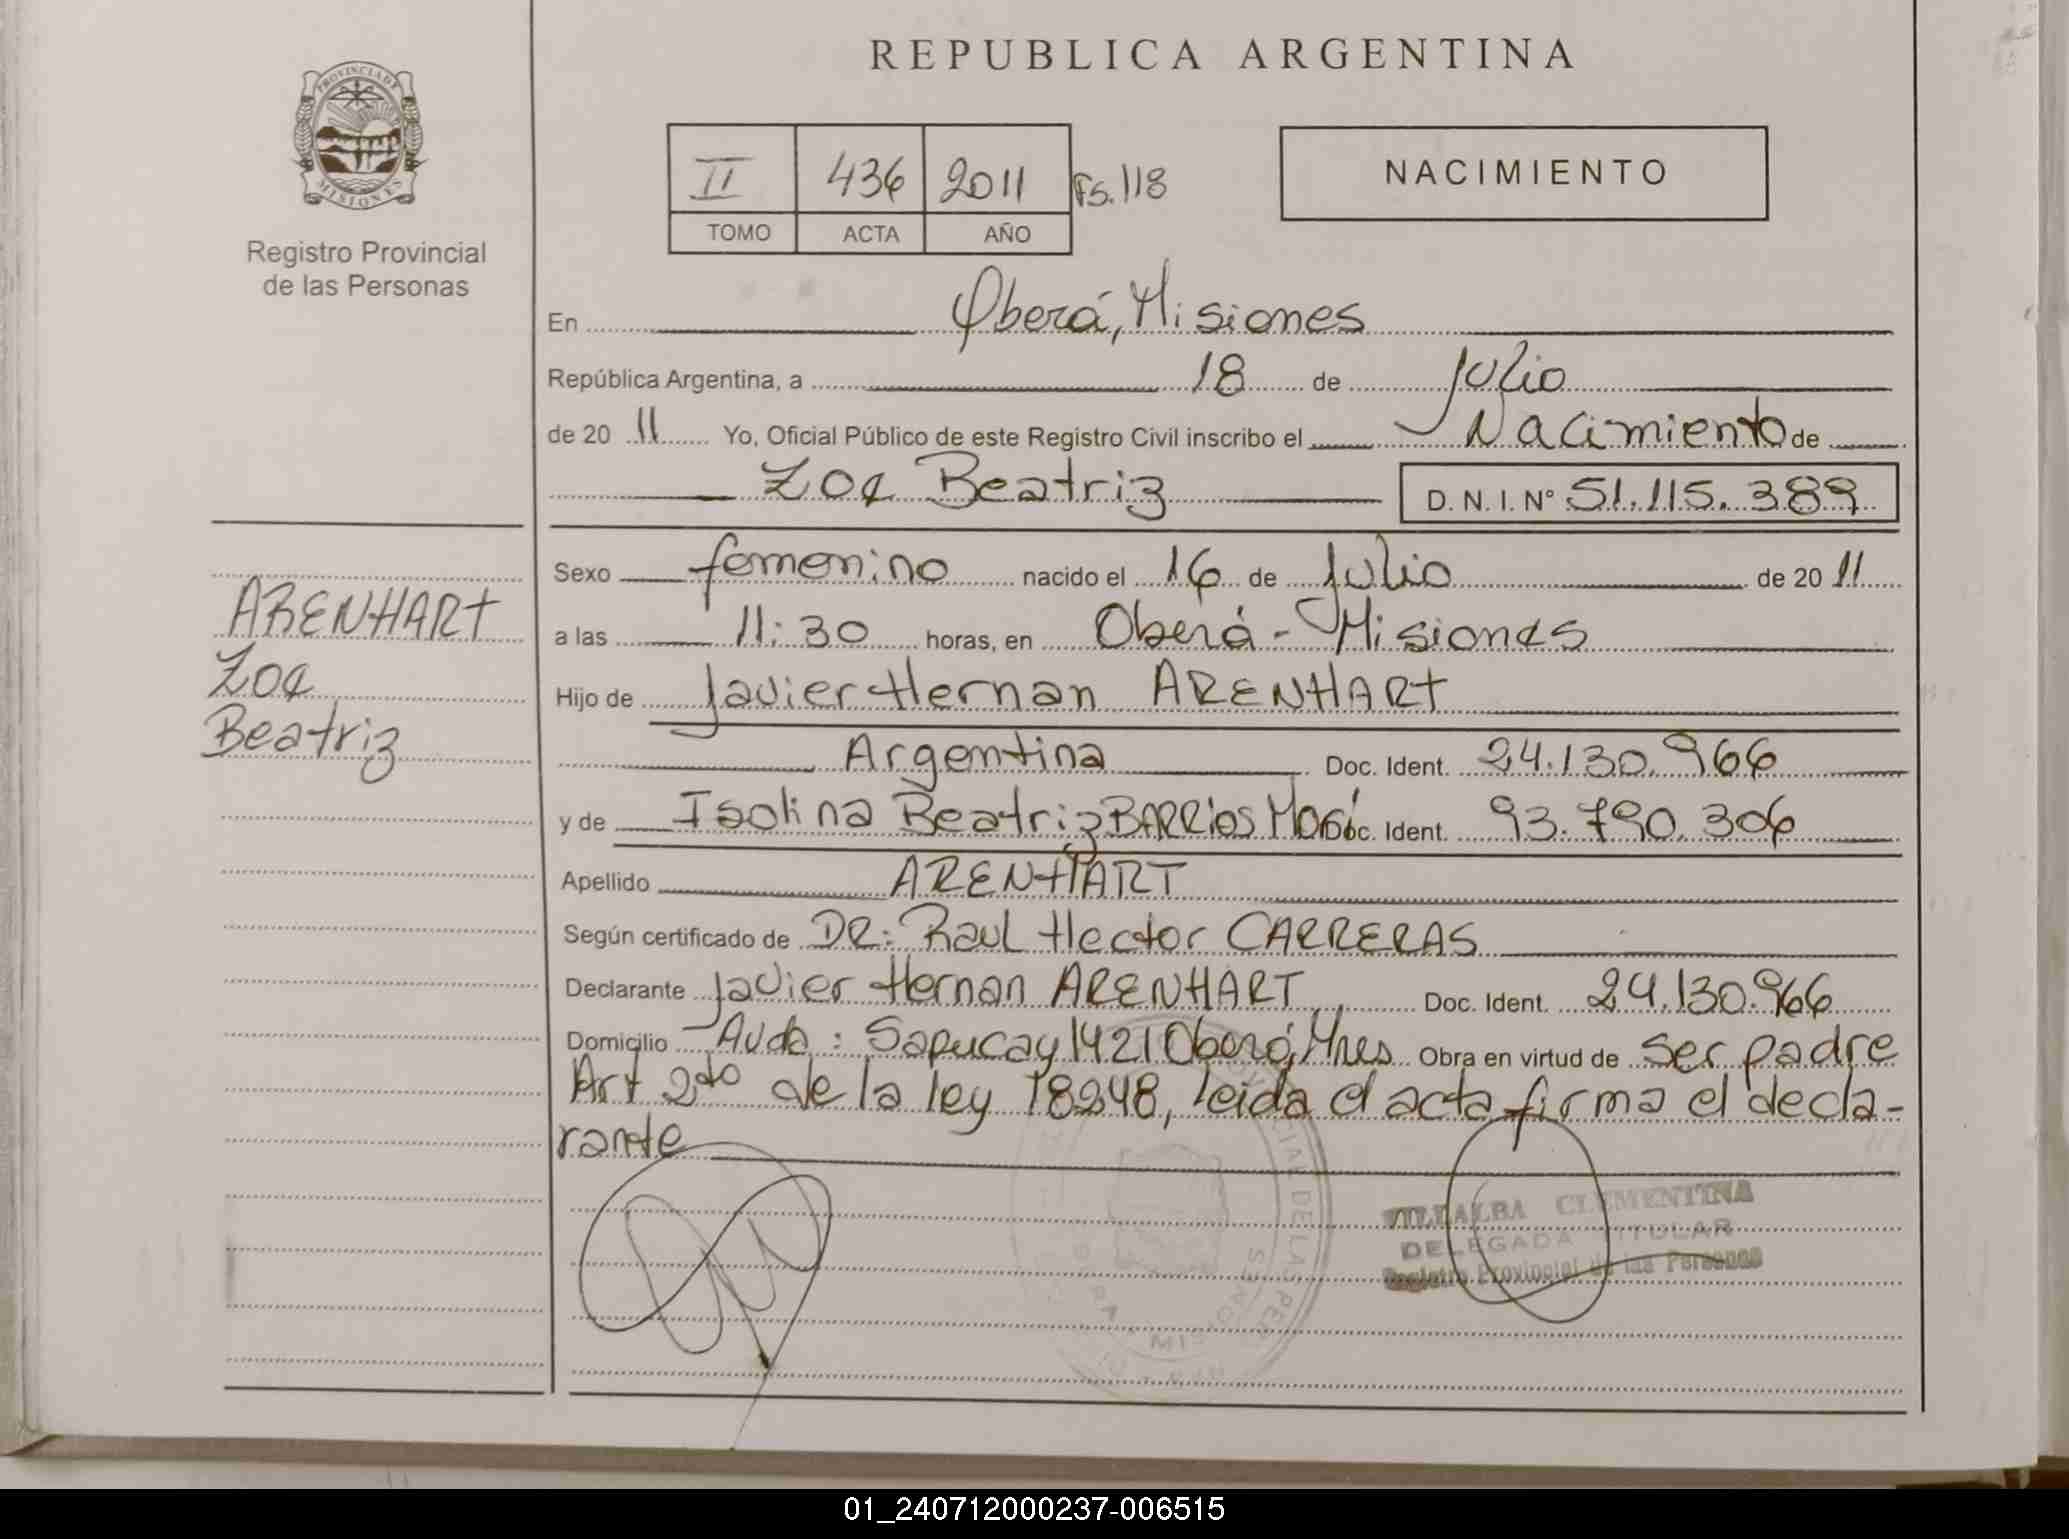 REPUBLICA ARGENTINA
PROVINCIA DE MISIONES
Registro Provincial
de las Personas
II 436 2011 Fs. 118
TOMO ACTA AÑO
NACIMIENTO
En Oberá, Misiones
República Argentina, a 18 de Julio
de 20 11 Yo, Oficial Público de este Registro Civil inscribo el Nacimiento de
Zoe Beatriz D. N. I. Nº 51.115.389
ARENHART
Zoe
Beatriz
Sexo femenino nacido el 16 de Julio de 20 11
a las 11:30 horas, en Oberá - Misiones
Hijo de Javier Hernan ARENHART
Argentina Doc. Ident. 24.130.966
y de Isolina Beatriz BARRIOS Doc. Ident. 93.790.306
Apellido ARENHART
Según certificado de DR: Raul Hector CARRERAS
Declarante Javier Hernan ARENHART Doc. Ident. 24.130.966
Domicilio Avda: Sapucay 1421 Oberá, Mnes Obra en virtud de ser padre
Art 2do de la ley 18248, leida el acta firma el decla-
rante
VILLALBA CLEMENTINA
DELEGADA TITULAR
Registro Provincial de las Personas
01_240712000237-006515